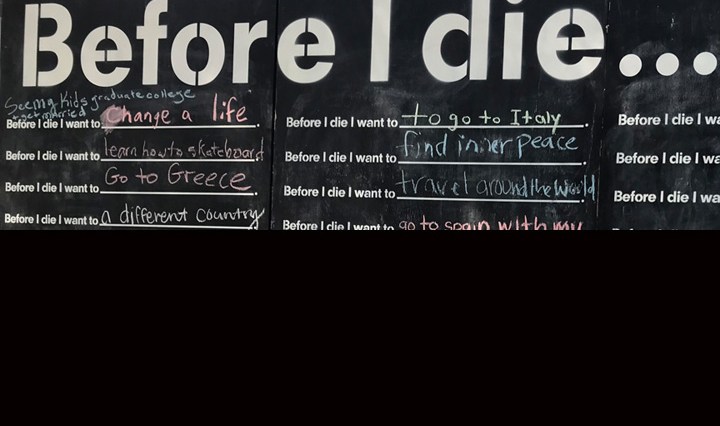 Before I die...
Seeing kids graduate college
+ get married
Before I die I want to change a life.
Before I die I want to learn how to skateboard
Before I die I want to Go to Greece.
Before I die I want to a different country
Before I die I want to to go to Italy.
Before I die I want to find inner peace.
Before I die I want to travel around the world
Before I die I want to go to spain with my
Before I die I wa
Before I die I wa
Before I die I wa